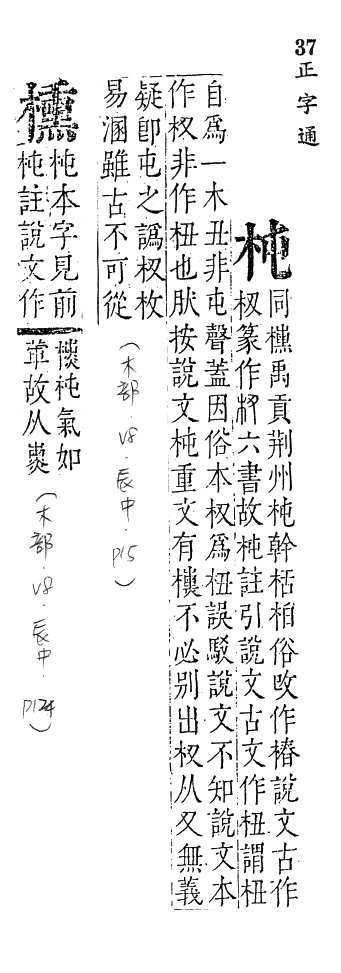 37
正字通
杶
同櫄禹貢荆州杶幹栝柏俗改作椿說文古作
杈篆作杽六書故杶註引說文古文作杻謂杻
自爲一木丑非屯聲蓋因俗本杈爲杻誤駁說文不知說文本
作杈非作杻也肰按說文杶重文有櫄不必別出杈从叉無義
疑卽屯之譌杈枚
易溷雖古不可從
(木部.V8.辰中.P15)
櫄
杶本字見前
杶註說文作
櫄杶氣如
葷故从熏
(木部.V8.辰中.P124)